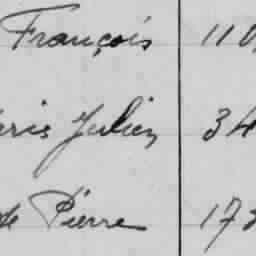 François 110
eris Julien 34
de Pierre 172